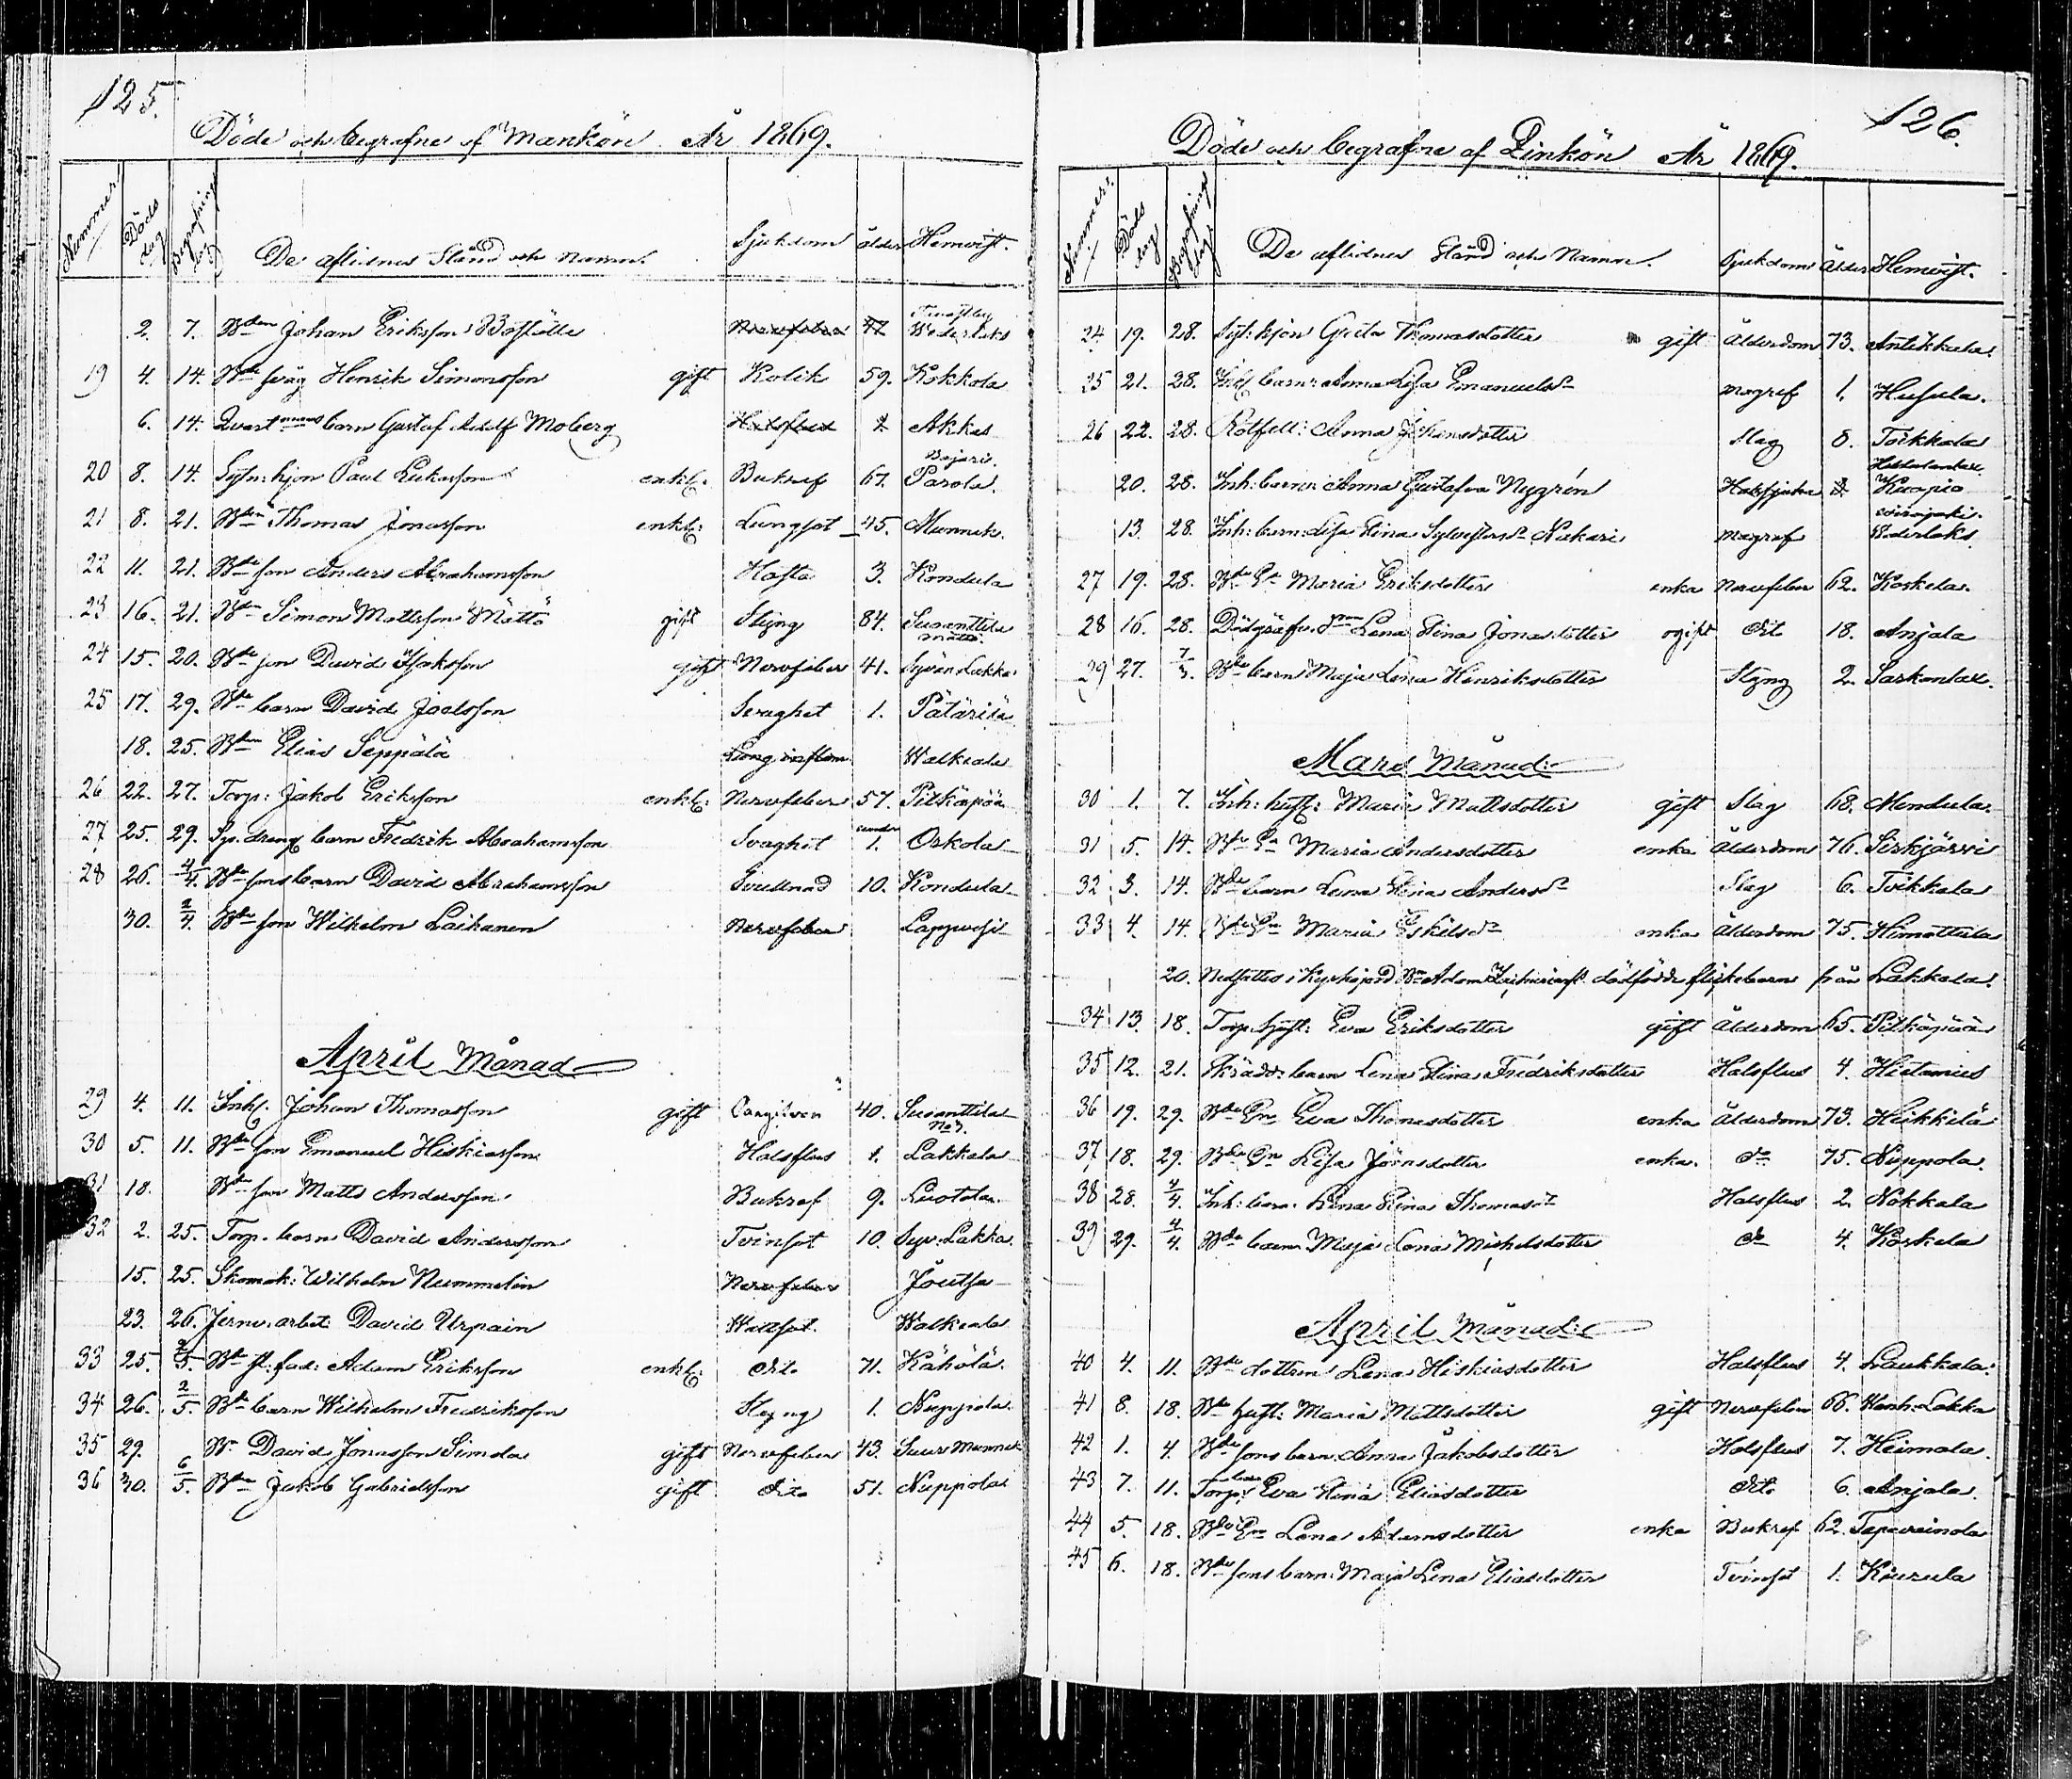 125.
Döde och begrafne af Mankön År 1869.
Nummer. Döds dag Begrafnings dag De aflidnes Stånd och namn. Sjukdom ålder Hemvist.
2. 7. Bden Johan Eriksson Nervfeber 47 Wederlaks
19 4. 14. Bde Henrik Simonsson gift Kolik 59. Kokkola
6. 14. barn Gustaf Adolf Moberg Halsfluss Akkas
20 8. 14. Sytn: hjon Paul Lukasson enkl. Bukref 67. Parola.
21 8. 21. Bden Thomas Jonasson enkl: Lungsot 45. Munnik.
22 11. 21. Bde son Anders Abrahamsson Hosta 3. Kondula
23 16. 21. Bden Simon Mattsson Mättö gift Styng 84. Susanttila
24 15. 20. Bde son David Isaksson gift Nervfeber 41. Syvän Lakka
25 17. 29. Bde barn David Joelsson Svaghet 1. Pätärilä
18. 25. Bden Elias Seppälä Lung inflam Walkeala
26 22. 27. Torp: Jakob Eriksson enkl: Nervfeber 57. Pitkäpää
27 25. 29. Sp. dreng barn Fredrik Abrahamsson Svaghet 1. Orkola
28 26. 4/4. Bde sons barn David Abrahamsson Svullnad 10. Kondula
30. 2/4. Bde son Wilhelm Laikanen Nervfeber Lappvesi
April Månad
29 4. 11. Inh. Johan Thomasson gift 40. Susanttila No 3.
30 5. 11. Bde son Emanuel Hiskiasson Halsfluss 1. Lakkala
31 18. Bde son Matts Andersson Bukref 9. Luotola.
32 2. 25. Torp. barn David Andersson Tvinsot 10. Syv. Lakka.
15. 25. Skomak: Wilhelm Nummelin Nervfeber Joutsa
23. 26. Jernv. arbet. David Urpain Wattsot. Walkeala
33 25. 2/5. Bde fl: fad: Adam Eriksson enkl: dito 71. Kähölä.
34 26. 2/5. Bde barn Wilhelm Fredriksson Styng 1. Nuppola.
35 29. Bn David Jonasson Simola gift Nervfeber 43. Suur Munnik
36 30. 6/5. Bden Jakob Gabrielsson gift dito 51. Nuppola
126.
Döde och begrafne af Qinkön År 1869.
Nummer. Döds dag Begrafnings dag De aflidnes Stånd och Namn. Sjukdom Ålder Hemvist.
24 19. 28. Syt: hjon Greta Thomasdotter gift Ålderdom 73. Anttikkala.
25 21. 28. Inh. barn: Anna Lisa Emanuelsdr magref 1. Husula.
26 22. 28. Rotfatt: Anna Johansdotter Slag 8. Toikkala
20. 28. Inh: barn: Anna Gustafva Nygrén Halssjuka Kuopio
13. 28. Inh: barn: Lisa Stina Sylvestersdr Nakari magref Wederlaks
27 19. 28. Bde Ea Maria Eriksdotter enka Nervfeber 62. Koskela.
28 16. 28. Dödgräfv. Lena Stina Jonasdotter ogift dito 18. Anjala
29 27. 7/3. Bde barn Maja Lena Henriksdotter Styng 2. Sarkenlax.
Mars Månad:
30 1. 7. Inh: hust: Maria Mattsdotter gift Slag 68. Mendula.
31 5. 14. Bde Ea Maria Andersdotter enka Ålderdom 76. Sirkjärvi
32 3. 14. Bde barn Lena Stina Andersdr Slag 6. Toikkala
33 4. 14. Bde En Maria Eskilsdr enka Ålderdom 75. Himottula
20. Nedsattes i Kyrkojord Bn Adam dödfödde flickebarn från Lakkala.
34 13. 18. Torp. hust: Eva Eriksdotter gift Ålderdom 65. Pitkäpää
35 12. 21. Skrädd: barn Lena Stina Fredriksdotter Halsflus 4. Hietamies
36 19. 29. Bde En Eva Thomasdotter enka Ålderdom 73. Heikkilä
37 18. 29. Bde En Lisa Jöransdotter enka. do 75. Nuppola.
38 28. 4/4. Inh: barn. Lena Stina Thomasdr Halsflus 2. Nokkala
39 29. 4/4. Bde barn Maja Lena Michelsdotter do 4. Koskela
April Månad:
40 4. 11. Bde dottren Lena Hiskiasdotter Halsflus 4. Laukkala.
41 8. 18. Bde hust: Maria Mattsdotter gift Nervfeber 66. Wanh. Lakka
42 1. 4. Bde sons barn Anna Jakobsdotter Halsflus 7. Heimala.
43 7. 11. Torp. barn Eva Stina Eliasdotter dito 6. Anjala.
44 5. 18. Bde En Lena Adamsdotter enka Bukref 62. Tapavainola
45 6. 18. Bde sons barn Maja Lena Eliasdotter Tvinsot 1. Kourula